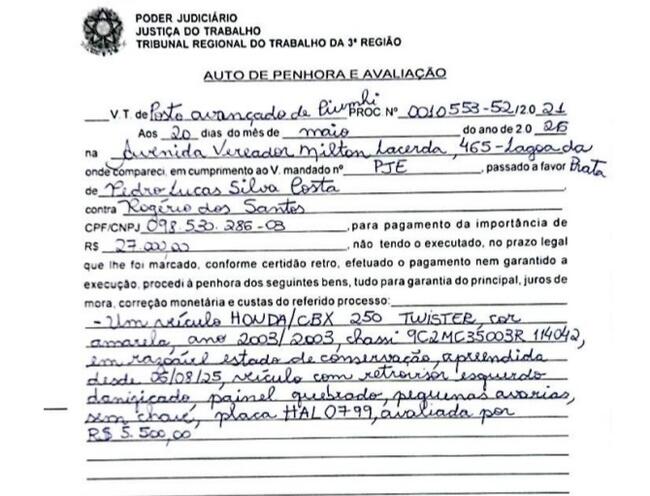 PODER JUDICIÁRIO
JUSTIÇA DO TRABALHO
TRIBUNAL REGIONAL DO TRABALHO DA 3ª REGIÃO
AUTO DE PENHORA E AVALIAÇÃO
V.T. de Posto avançado de Piumhi PROC Nº 0010553-52/20 21
Aos 20 dias do mês de maio do ano de 20 26
na Avenida Vereador Milton Lacerda, 465-Lagoa da
onde compareci, em cumprimento ao V. mandado nº PJE, passado a favor Prata
de Pidro Lucas Silva Costa
contra Rogério dos Santos
CPF/CNPJ 098.530.286-03, para pagamento da importância de
R$ 27.000,00, não tendo o executado, no prazo legal
que lhe foi marcado, conforme certidão retro, efetuado o pagamento nem garantido a
execução, procedi à penhora dos seguintes bens, tudo para garantia do principal, juros de
mora, correção monetária e custas do referido processo:
- Um veículo HONDA/CBX 250 TWISTER, cor
amarela, ano 2003/2003, chassi 9C2MC35003R 114042,
em razoável estado de conservação, apreendida
desde 06/08/25, veículo com retrovisor esquerdo
danificado, painel quebrado, pequenas avarias,
sem chave, placa HAL 0799, avaliada por
R$ 5.500,00